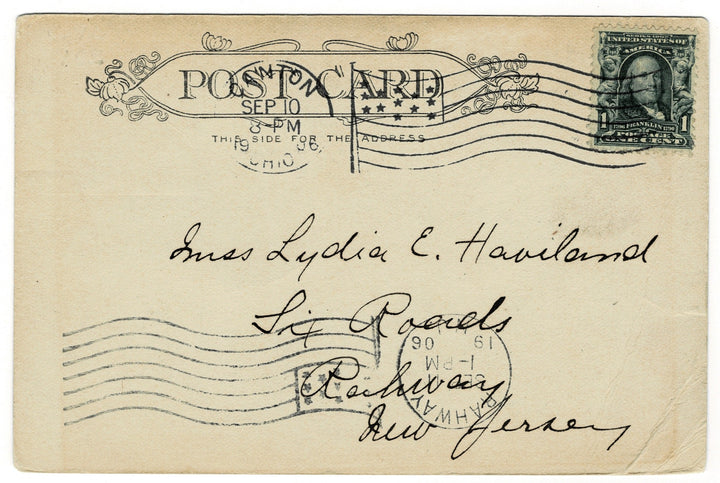 POST CARD
CANTON
SEP 10
8-PM
1906
OHIO
THIS SIDE FOR THE ADDRESS
SERIES 1902
UNITED STATES OF
AMERICA
FRANKLIN
POSTAGE
1 1
ONE CENT
Miss Lydia E. Haviland
Six Roads
Rahway
New Jersey
RAHWAY
1-PM
19 06